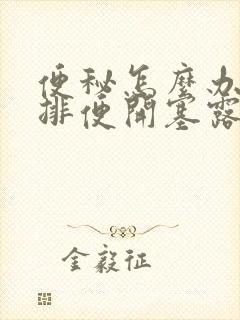 便秘怎麼办
排便開塞露
金毅征